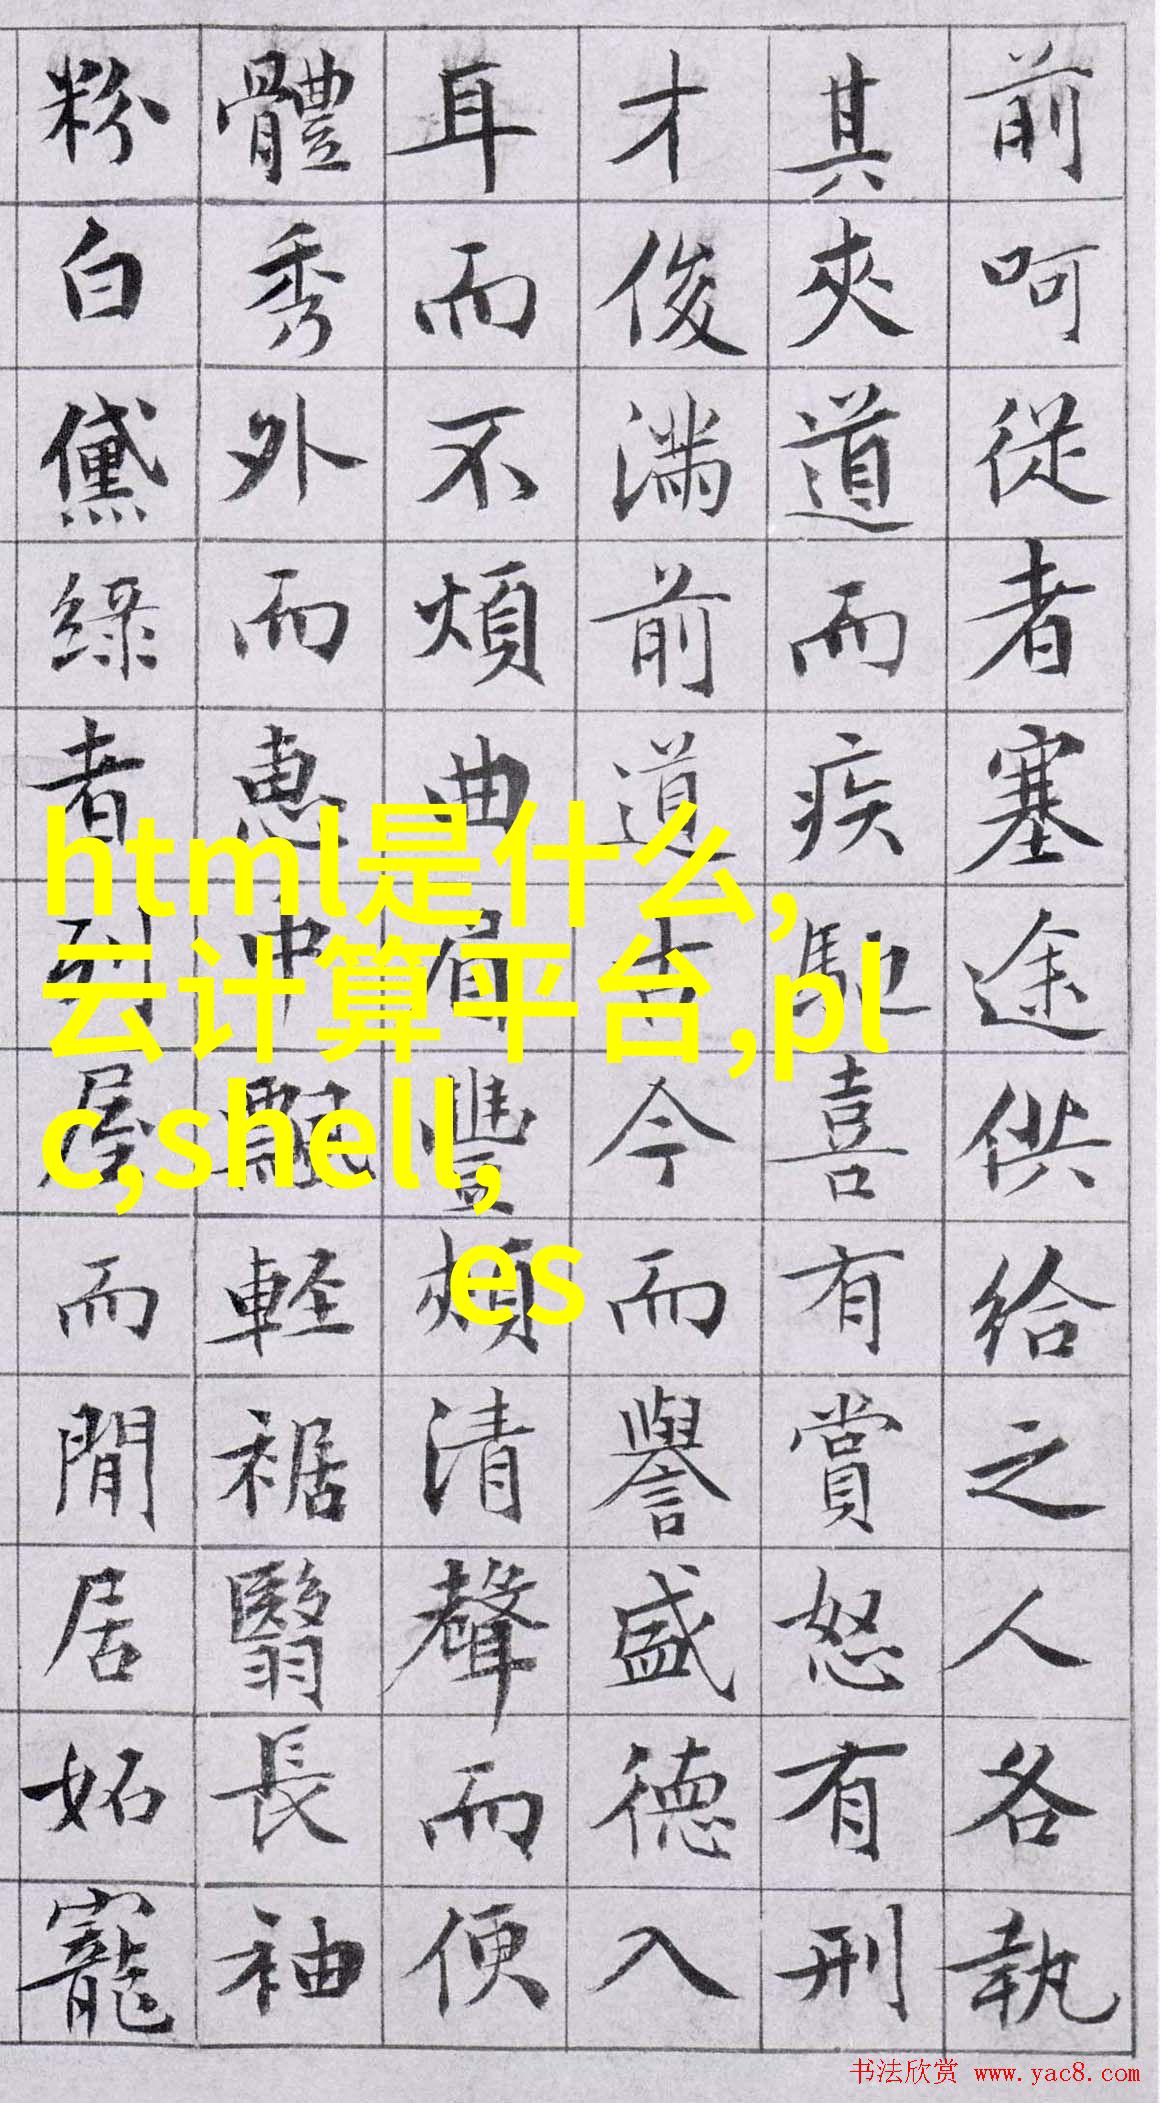 前呵從者塞途供給之人各執
其夾道而疾馳喜有賞怒有刑
才俊満前道古今而譽盛德入
耳而不煩曲眉豐頰清聲而便
體秀外而惠中飄軽裾翳長袖
粉白黛綠者列屋而閒居妬寵
html是什么,
云计算平台,pl
c,shell,
es
书法欣赏 www.yac8.com